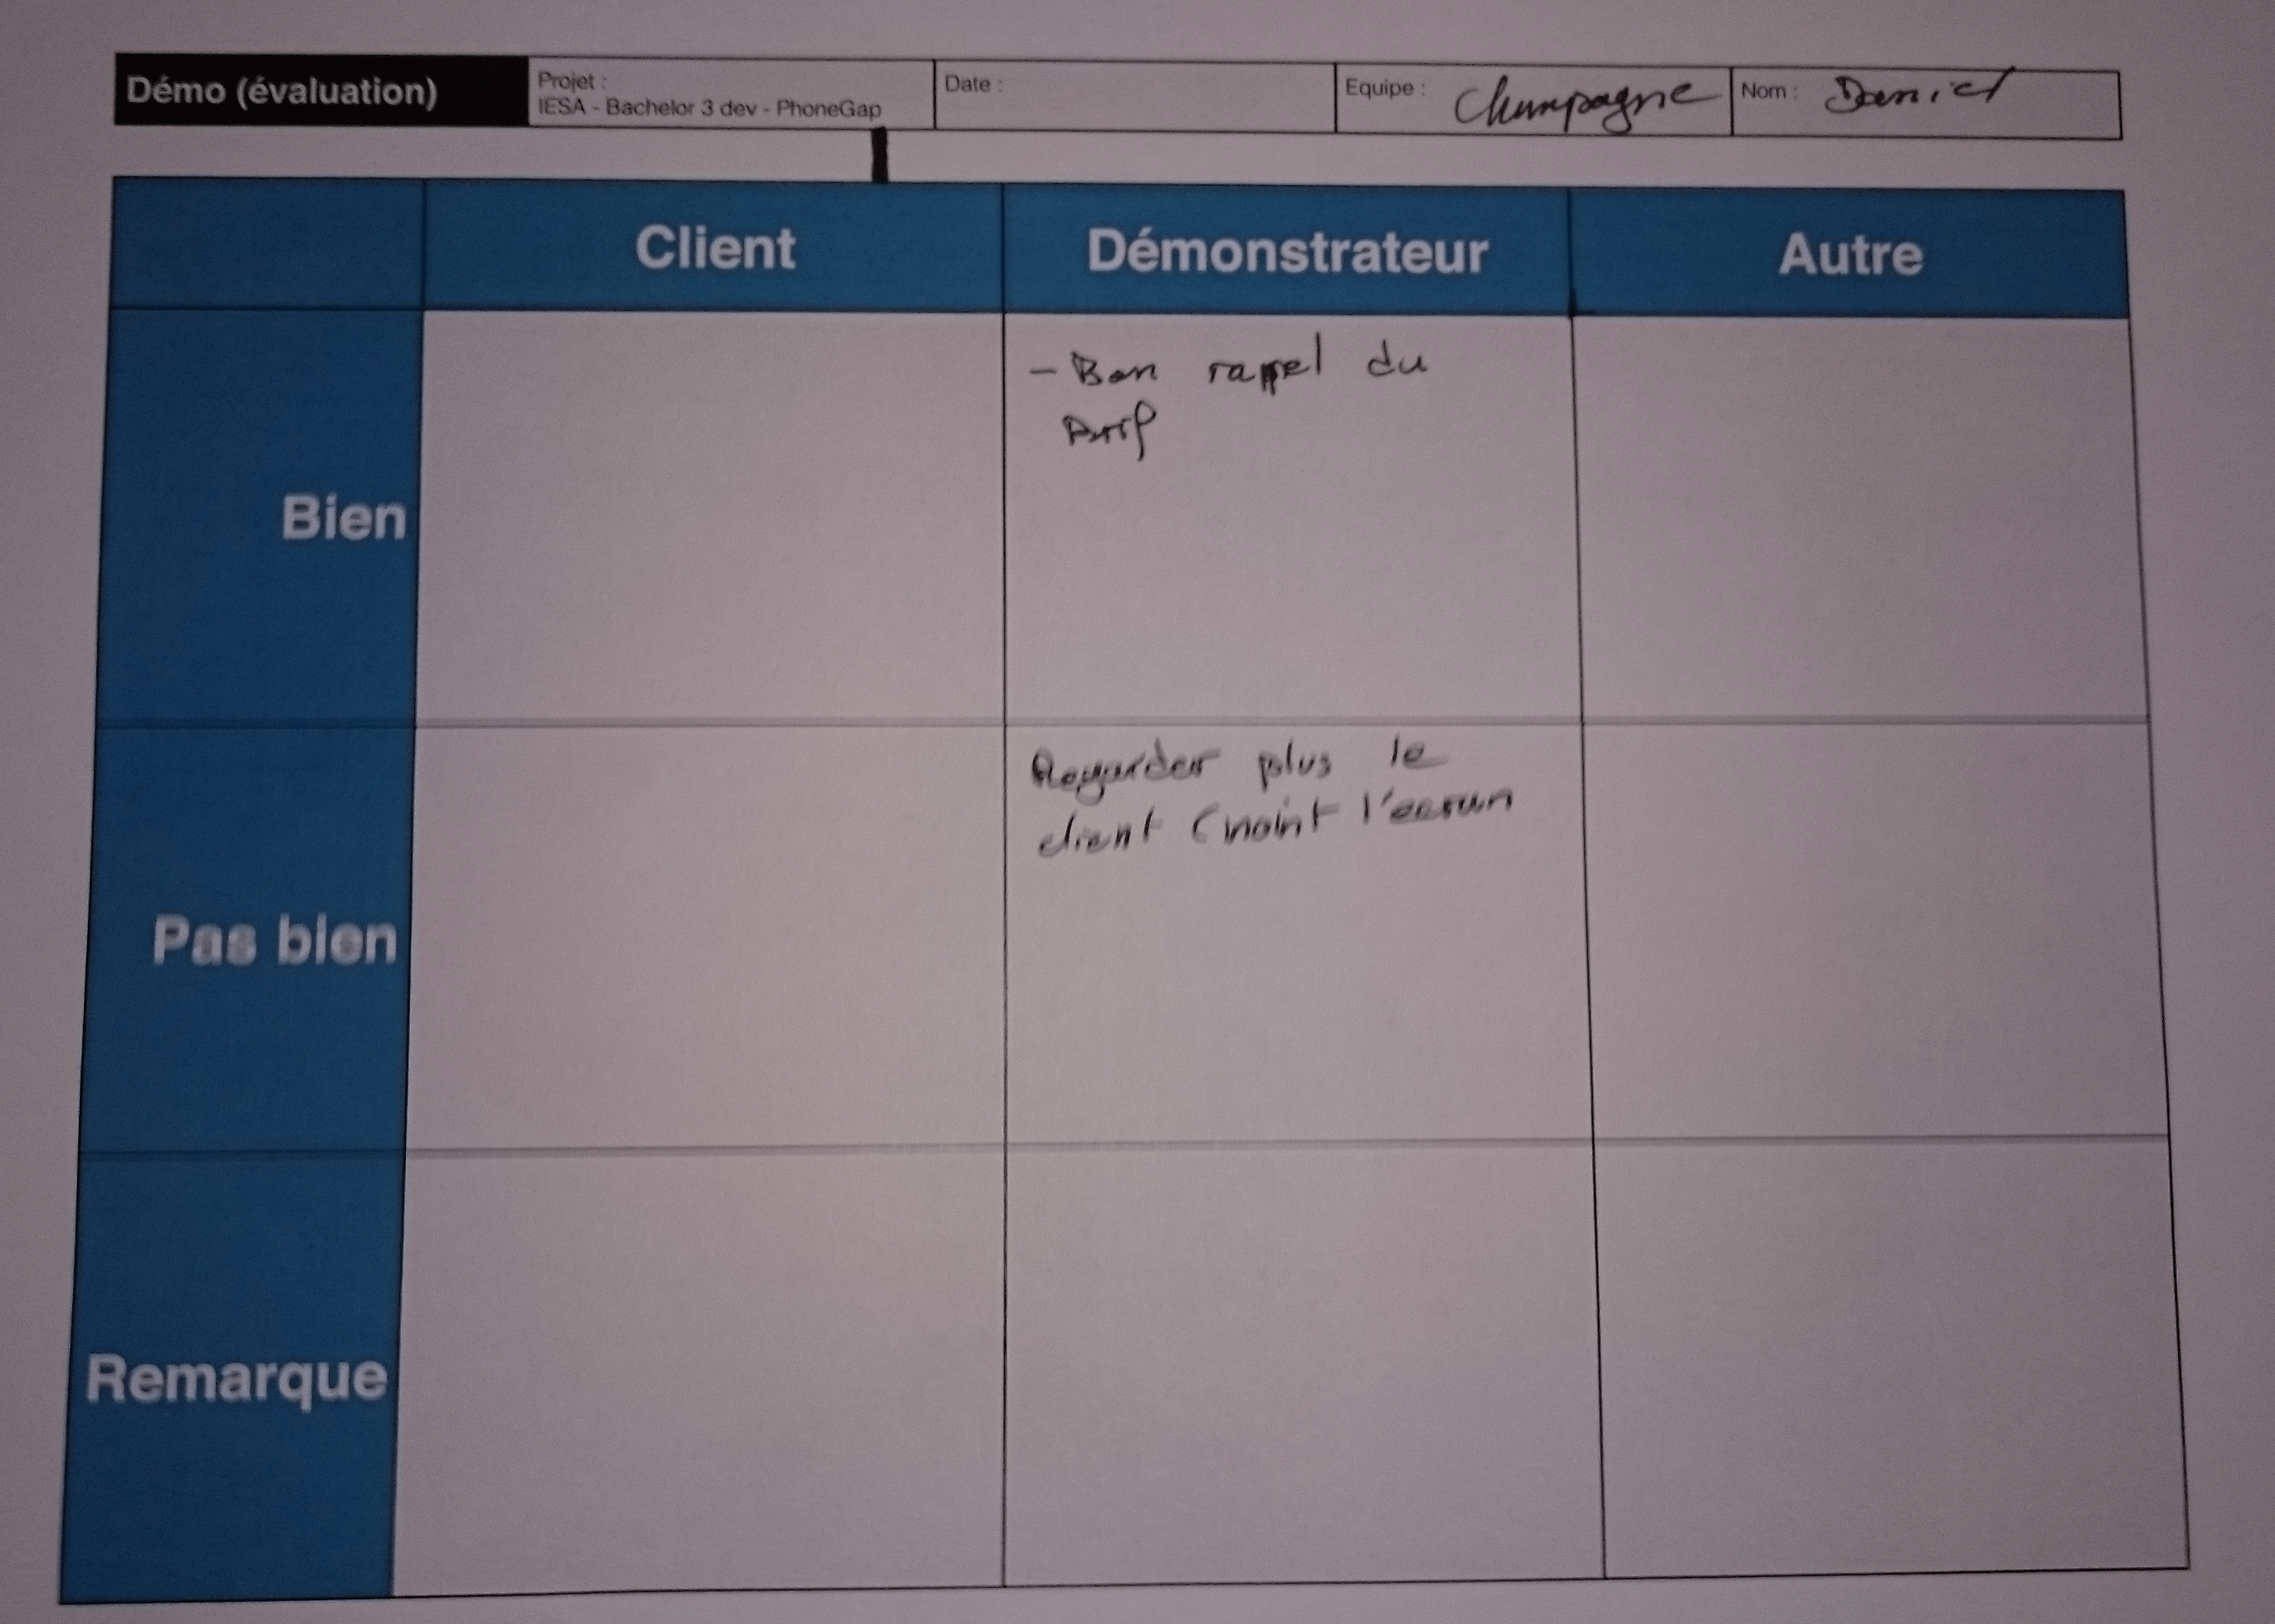 Démo (évaluation)
Projet :
IESA - Bachelor 3 dev - PhoneGap
Date :
Equipe : Champagne
Nom : Daniel
Client
Démonstrateur
Autre
Bien
- Bon rappel du
Brif
Pas bien
Regarder plus le
client (moint l'ecran
Remarque